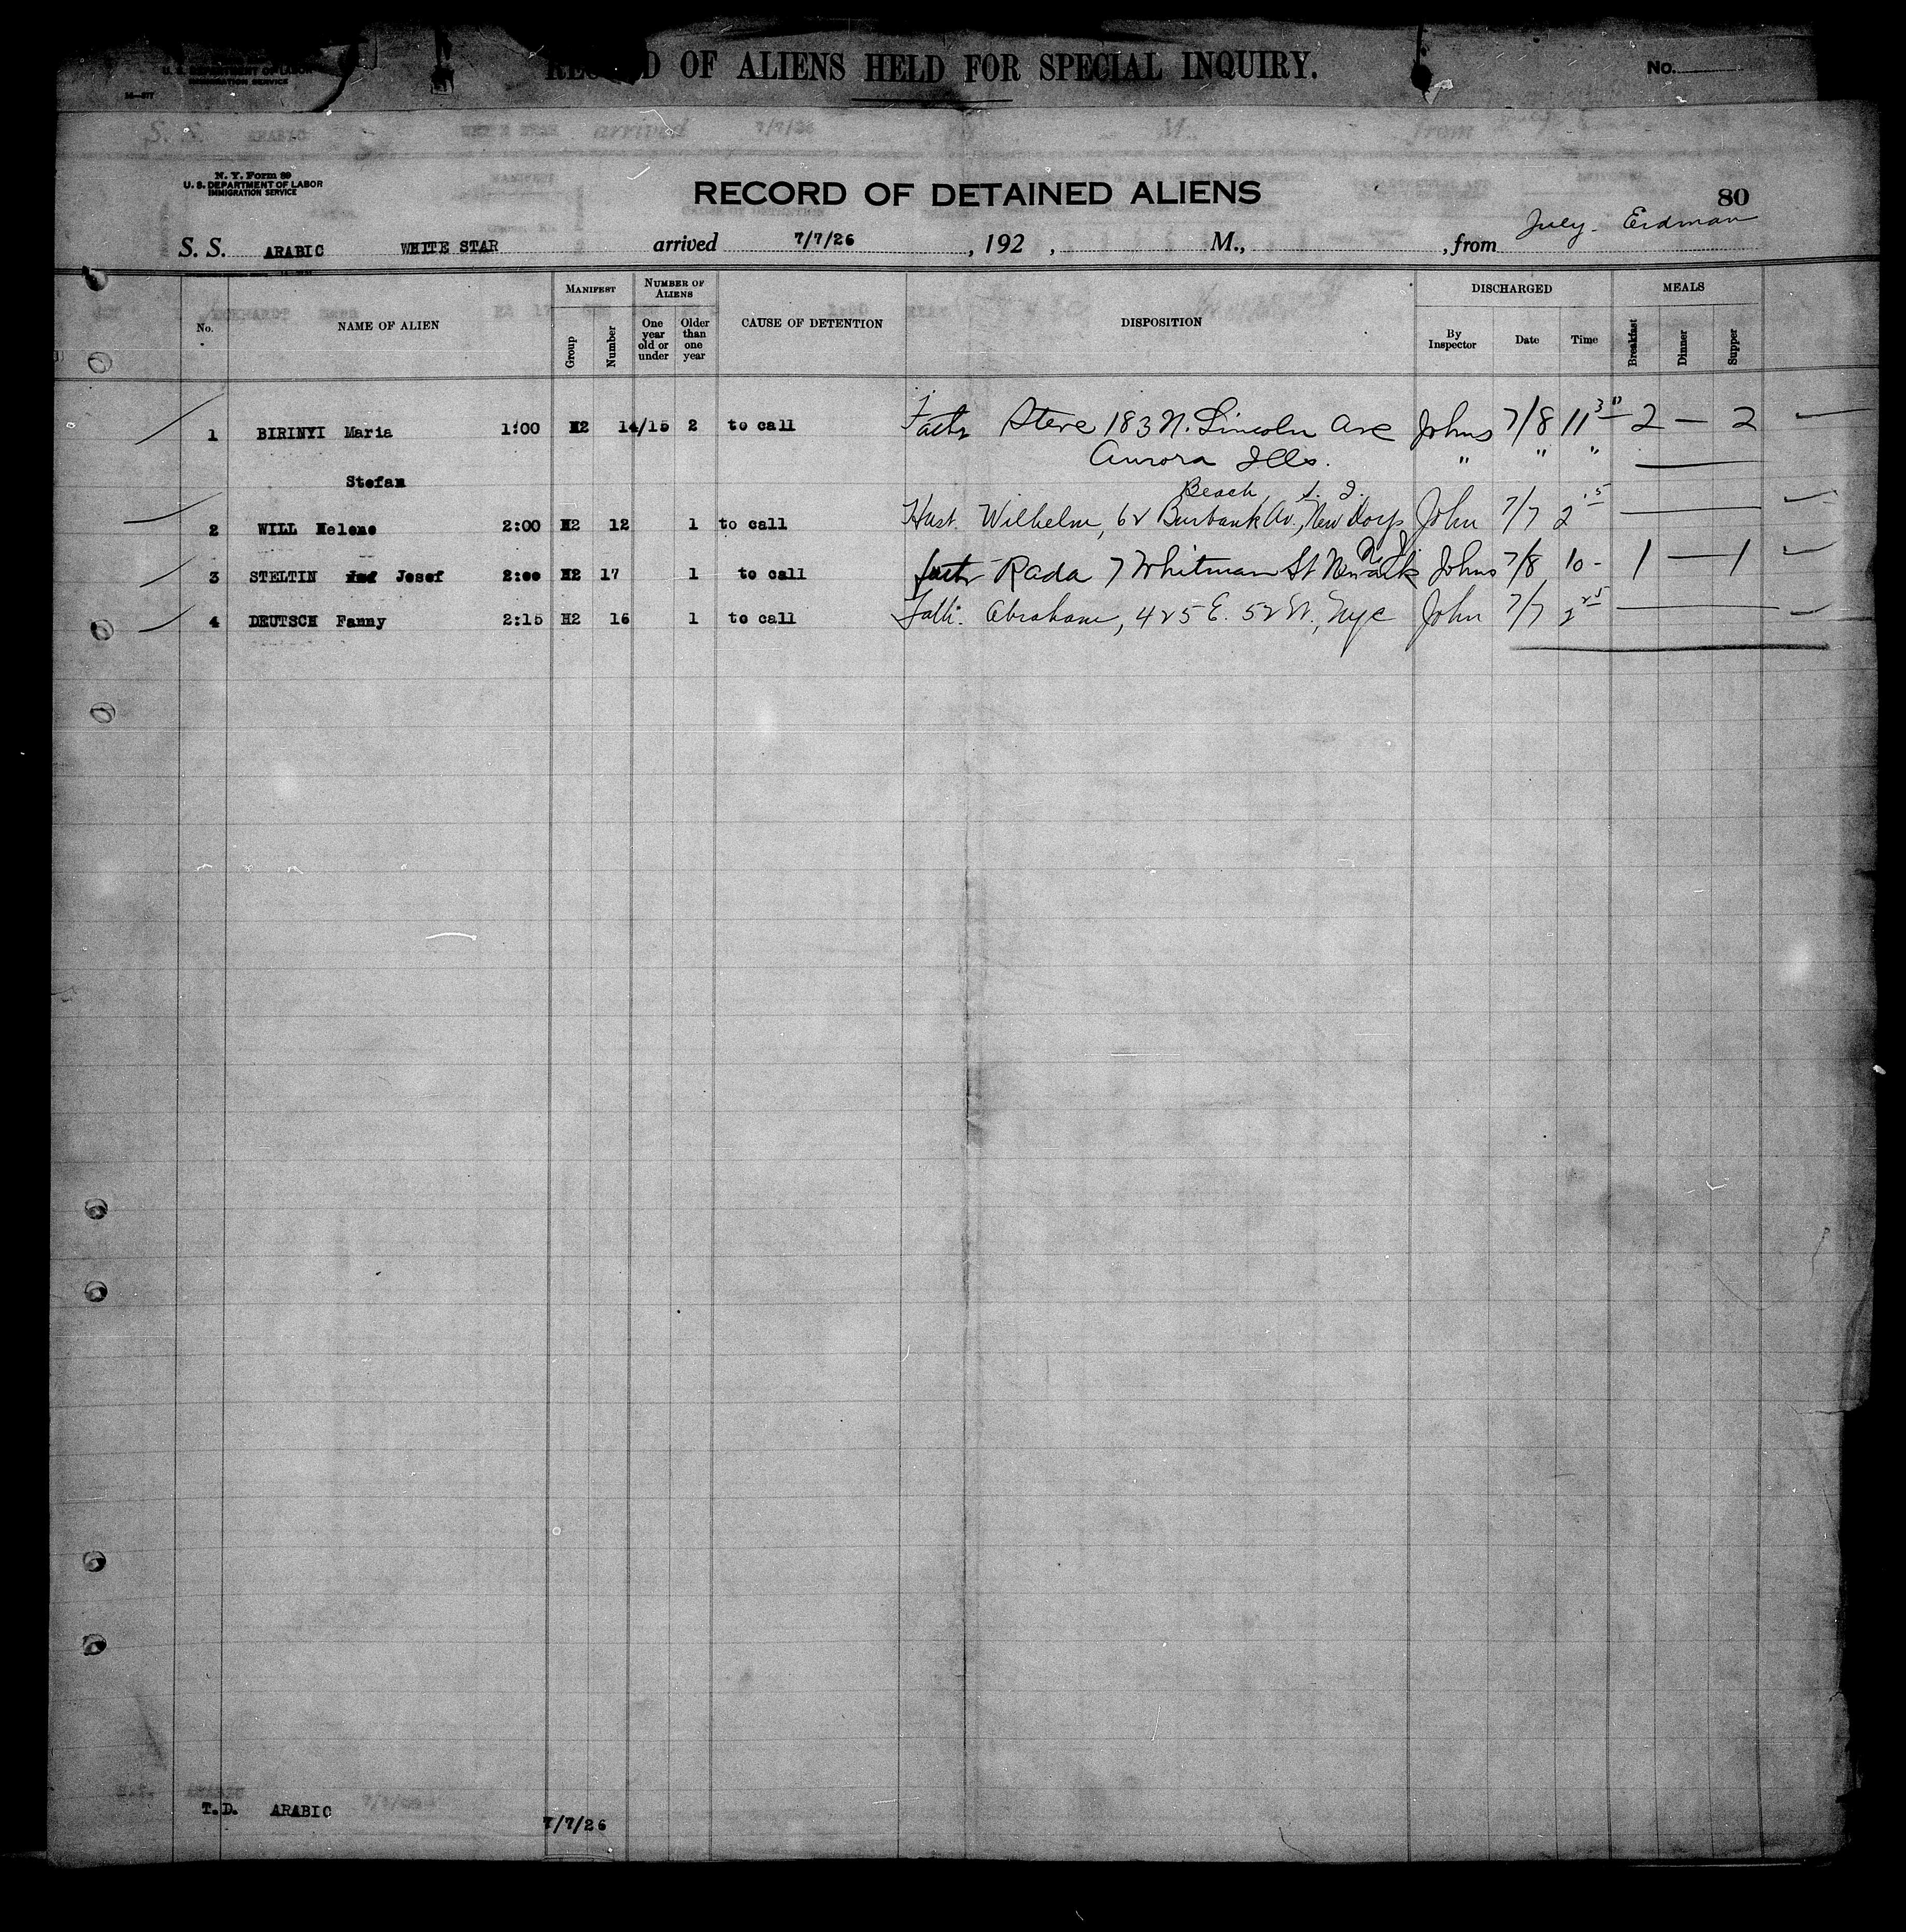 OF ALIENS HELD FOR SPECIAL INQUIRY. No.
S. S. ARABIC WHITE STAR arrived 7/7/26 M., from
N. Y. Form 89
U. S. DEPARTMENT OF LABOR
IMMIGRATION SERVICE
RECORD OF DETAINED ALIENS
80
S. S. ARABIC WHITE STAR arrived 7/7/26, 192 , M., , from July. Erdman
No. NAME OF ALIEN MANIFEST Group Number NUMBER OF ALIENS One year old or under Older than one year CAUSE OF DETENTION DISPOSITION DISCHARGED By Inspector Date Time MEALS Breakfast Dinner Supper
1 BIRINYI Maria 1:00 H2 14/15 2 to call Fath Steve 183 N. Lincoln Ave Johns 7/8 11 30 2 — 2
Aurora Ills. " " "
Stefan
Beach, S. I.
2 WILL Helene 2:00 H2 12 1 to call Husb. Wilhelm, 62 Burbank Av., New Dorp John 7/7 2 15
N J
3 STELTIN Josef 2:00 H2 17 1 to call Rada 7 Whitman St Newark Johns 7/8 10 - 1 — 1
4 DEUTSCH Fanny 2:15 H2 16 1 to call Fath. Abraham, 425 E. 52 St., Nyc John 7/7 2 25
T.D. ARABIC 7/7/26